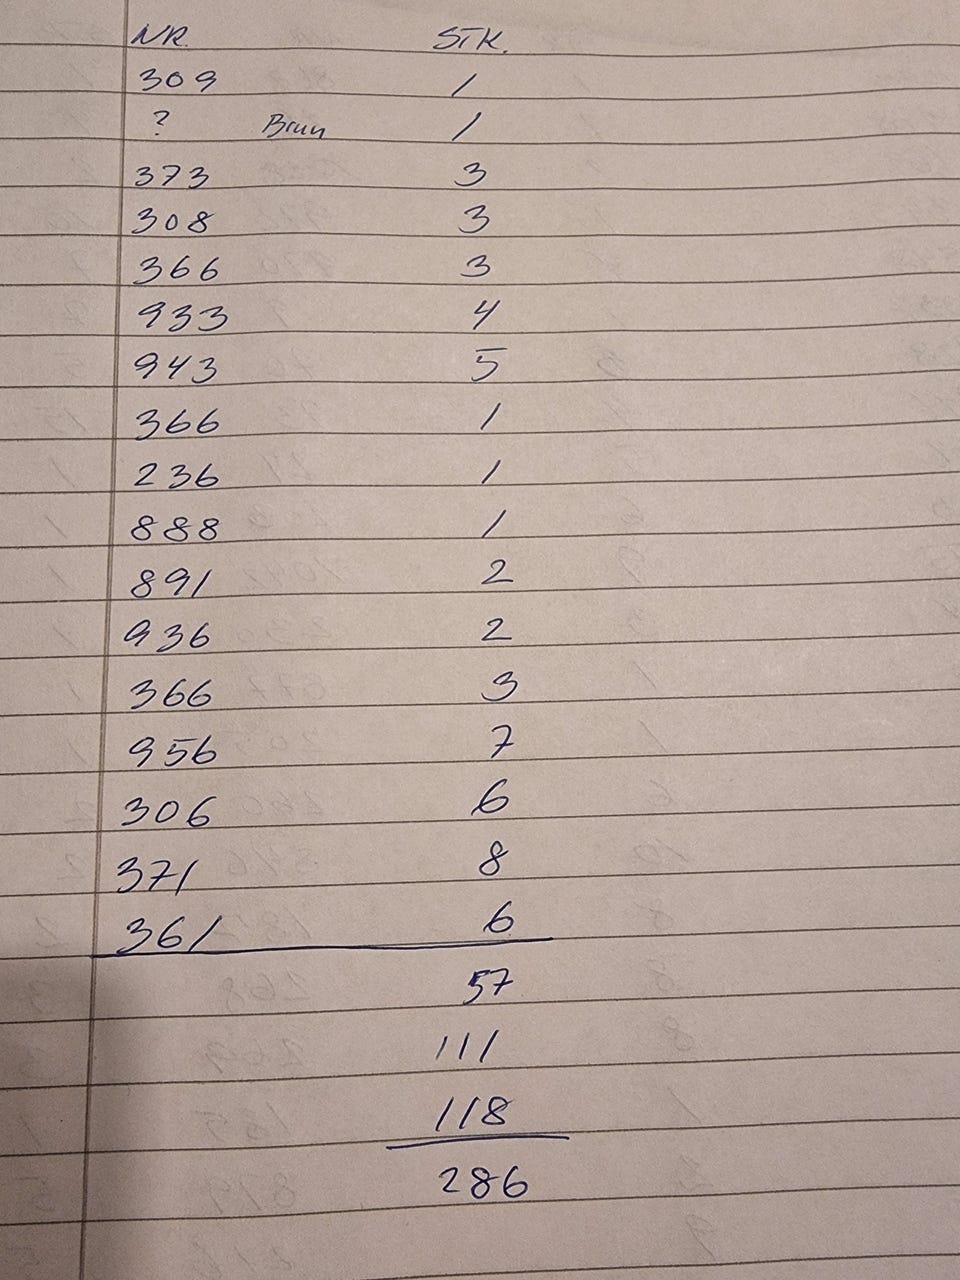 NR. STK.
309 1
? Brun 1
373 3
308 3
366 3
933 4
943 5
366 1
236 1
888 1
891 2
936 2
366 3
956 7
306 6
371 8
361 6
57
111
118
286